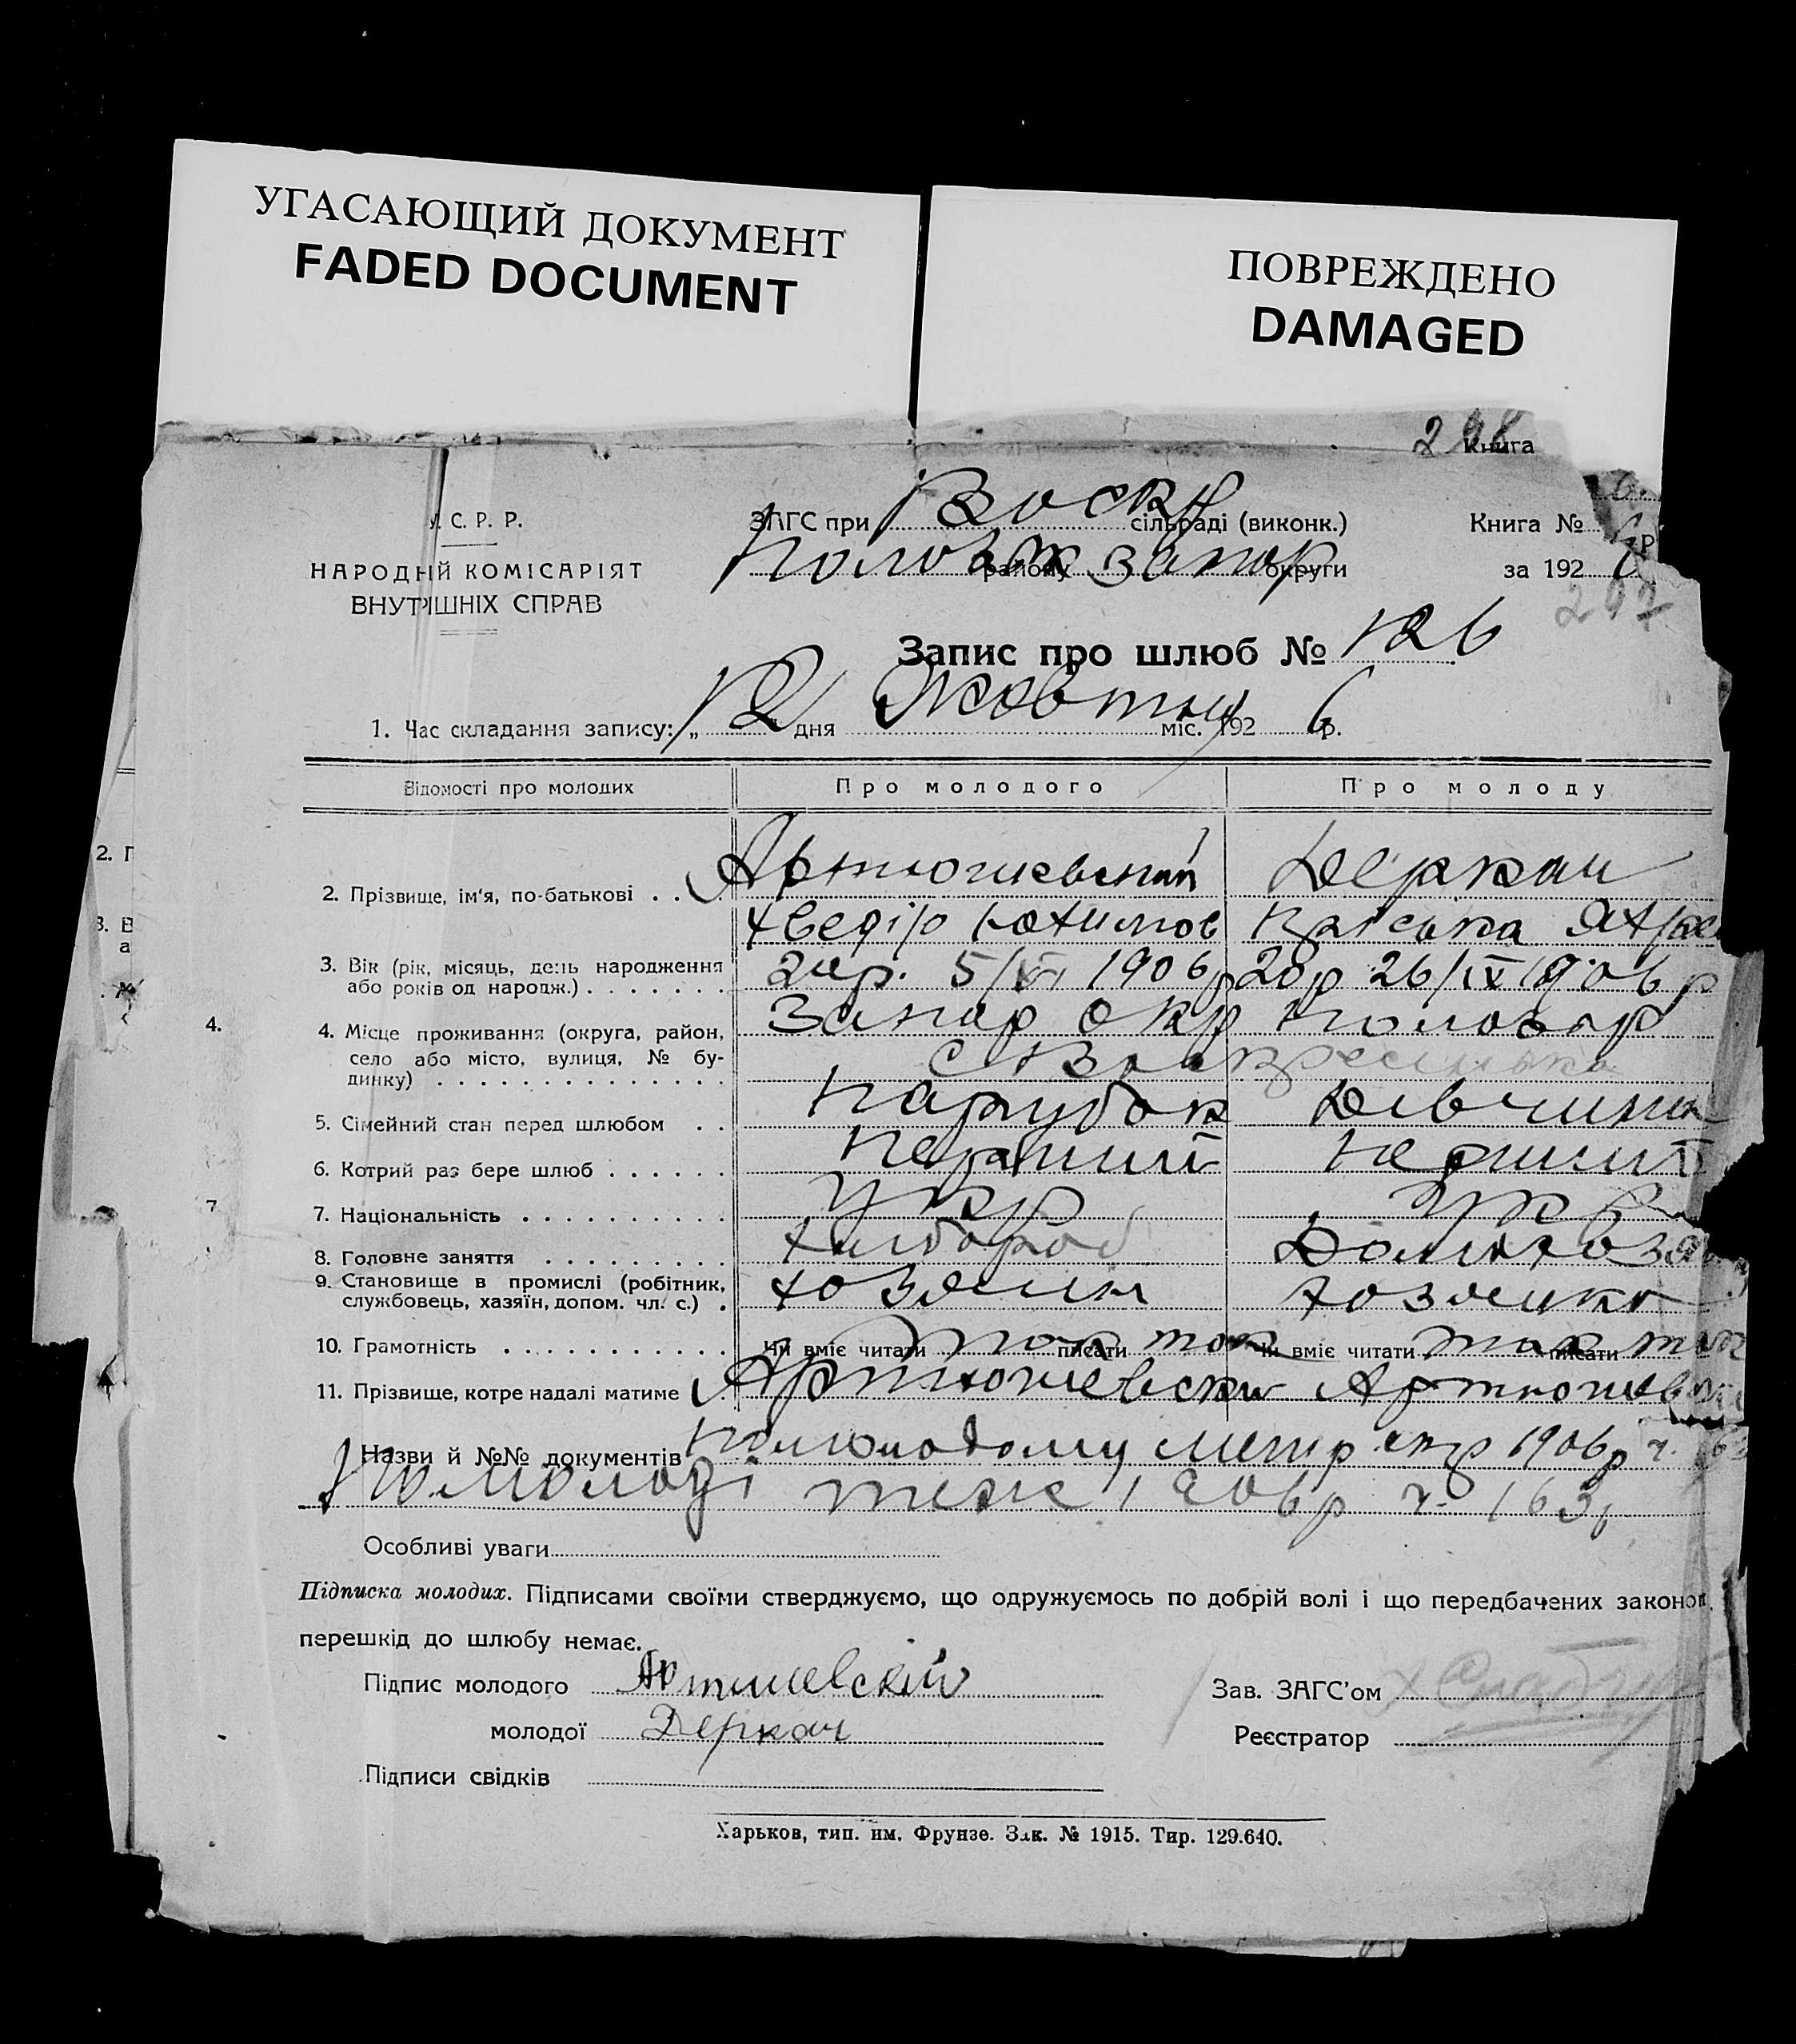 УГАСАЮЩИЙ ДОКУМЕНТ
FADED DOCUMENT
ПОВРЕЖДЕНО
DAMAGED
Книга
У. С. Р. Р.
НАРОДНІЙ КОМІСАРІЯТ
ВНУТРІШНІХ СПРАВ
ЗАГС при Воскр сільраді (виконк.)
району Запор округи
Книга №
за 1926 р
297
Запис про шлюб № 126
1. Час складання запису: „12" дня Жовтня міс. 1926 р.
Відомості про молодих Про молодого Про молоду
2. Прізвище, ім'я, по-батькові . . . Артюшевский Деркач
Хведір Юхимов
3. Вік (рік, місяць, день народження 5/ 1906 р 20 р 26/IX 1906 р
або років од народж.) . . . . . . .
4. Місце проживання (округа, район, Запор окр Полог р
село або місто, вулиця, № бу- с Воскресенька
динку) . . . . . . . . . . . . . .
5. Сімейний стан перед шлюбом . . Парубок Дівчина
6. Котрий раз бере шлюб . . . . . . Перший Перший
7. Національність . . . . . . . . . . Укр Укр
8. Головне заняття . . . . . . . . . Хлібороб Домохозя
9. Становище в промислі (робітник, хозяин хозяика
службовець, хазяїн, допом. чл. с.) .
10. Грамотність . . . . . . . . . . . Чи вміє читати так писати так Чи вміє читати так писати так
11. Прізвище, котре надалі матиме . Артюшевски Артюшев
Назви й №№ документів По молодому метр 1906 р ч.
По молоді теж 1906 р ч. 163
Особливі уваги
Підписка молодих. Підписами своїми стверджуємо, що одружуємось по добрій волі і що передбачених законом
перешкід до шлюбу немає.
Підпис молодого Артюшевский
Зав. ЗАГС'ом
молодої Деркач
Реєстратор
Підписи свідків
Харьков, тип. им. Фрунзе. Зак. № 1915. Тир. 129.640.